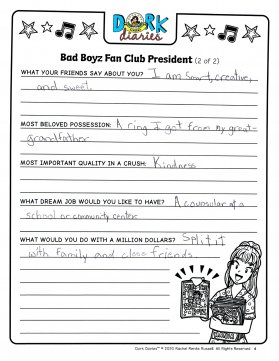 DORK
diaries
Bad Boyz Fan Club President (2 of 2)
WHAT YOUR FRIENDS SAY ABOUT YOU? I am smart, creative,
and sweet.
MOST BELOVED POSSESSION: A ring I got from my great-
grandfather
MOST IMPORTANT QUALITY IN A CRUSH: Kindness
WHAT DREAM JOB WOULD YOU LIKE TO HAVE? A counsular of a
school or community center
WHAT WOULD YOU DO WITH A MILLION DOLLARS? Split it
with family and close friends.
Dork Diaries™ © 2020 Rachel Renée Russell. All Rights Reserved.